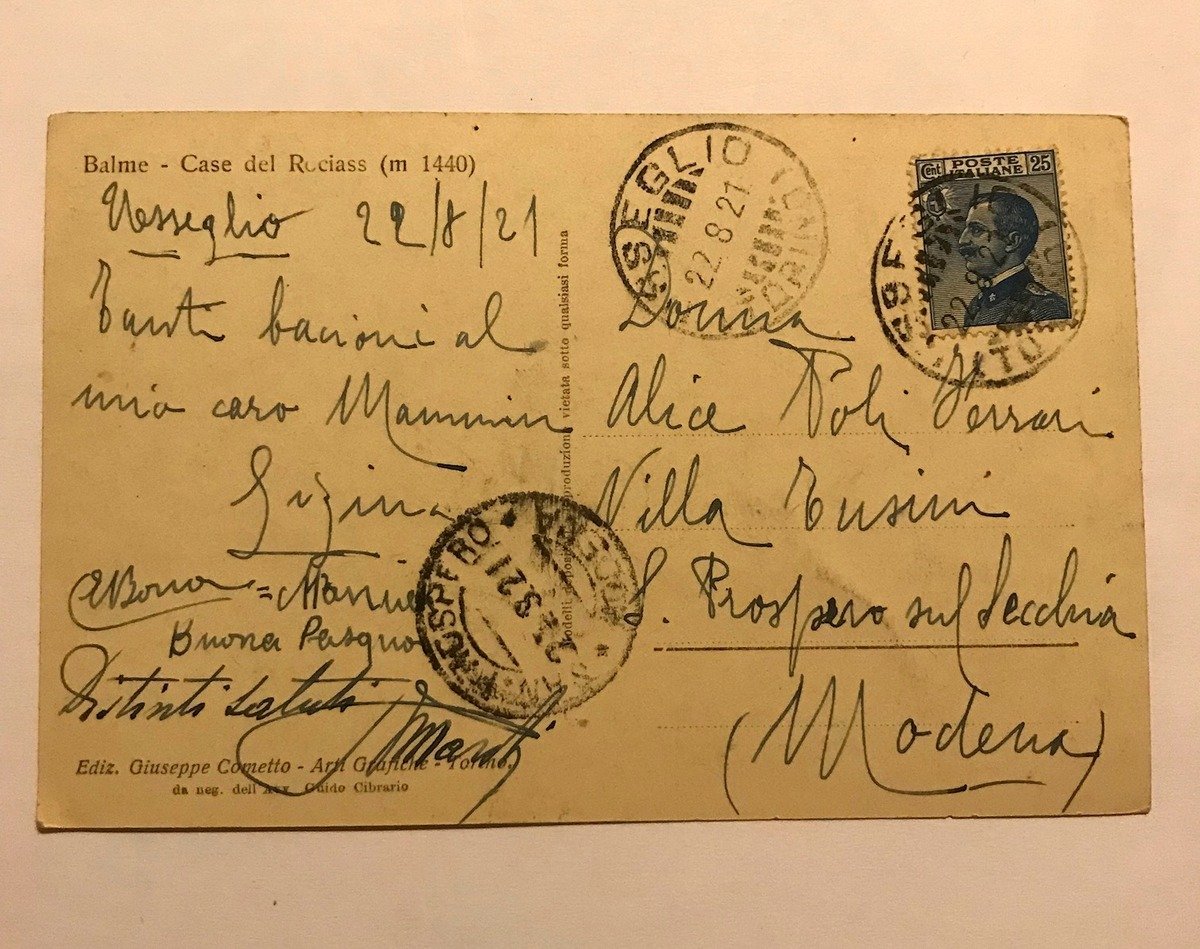 Balme - Case del Rociass (m 1440)
Usseglio 22/8/21
Tanti bacioni al
mio caro Mammin
Gigina
Buona Pasqua
Distinti saluti
Ediz. Giuseppe Cometto - Arti Grafiche - Torino.
da neg. dell'Avv. Guido Cibrario
produzione vietata sotto qualsiasi forma
USSEGLIO TORINO
22.8.21
Cent POSTE ITALIANE 25
USSEGLIO
22.8.21
Donna
Alice Poli Ferrari
Villa Tusini
S. Prospero sul Secchia
(Modena)